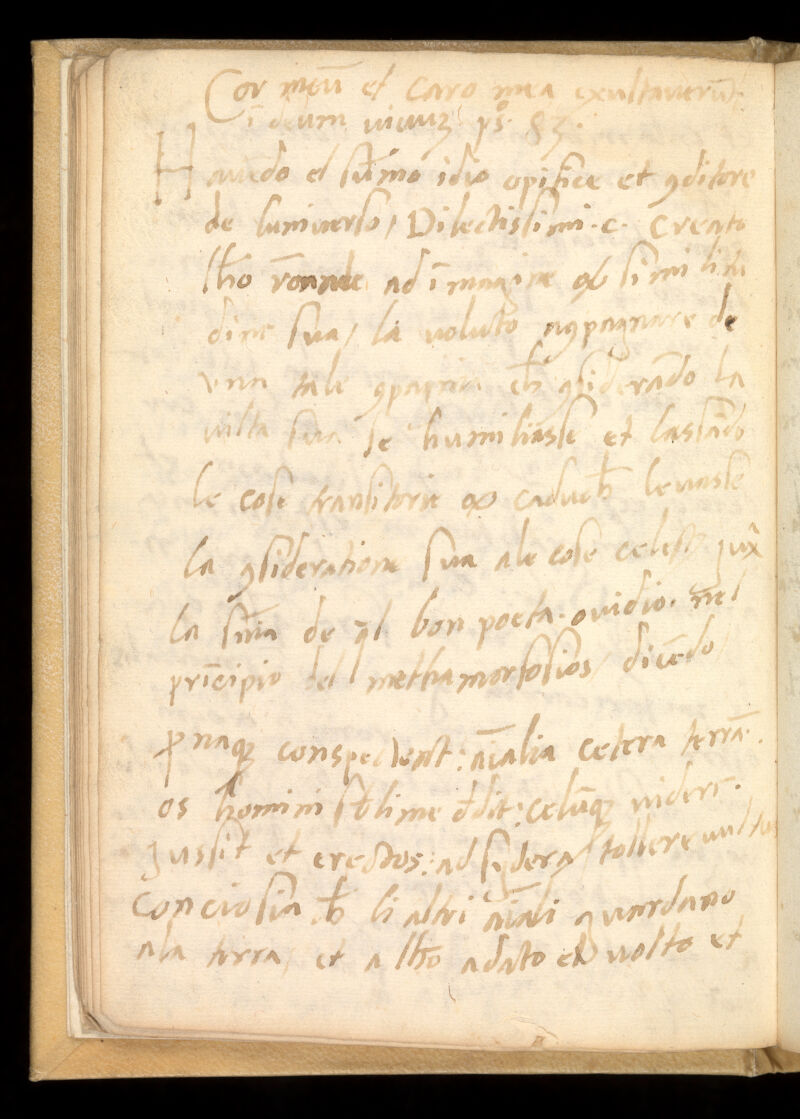 Cor meū et caro mea exultauerūt
ī deum uiuuꝫ ps. 83.
Hauēdo el sūmo idio opifice et ꝯditore
de luniuerso / Dilectissimi. c. creato
lhō rōnale ad īmagine & simili tu
dine sua / la uoluto aꝯpagnare de
vna tale ꝯpagnia ch̄ ꝯsiderādo la
uilta sua se humiliasse et lassādo
le cose transitorie & caduch̄ leuasse
la ꝯsideratione sua ale cose celest. iux̄
la sn̄ia de q̄l bon poeta. ouidio. nel
prīcipio del methamorfosios / dicēdo
Pnaqꝫ conspectent: aīalia cetera terrā.
os homini sūblime dedit: celūqꝫ uidere.
jussit et erectos: ad sydera / tollere uultus
conciosia ch̄ li altri aīali guardano
ala terra / et a lhō a dato el uolto et